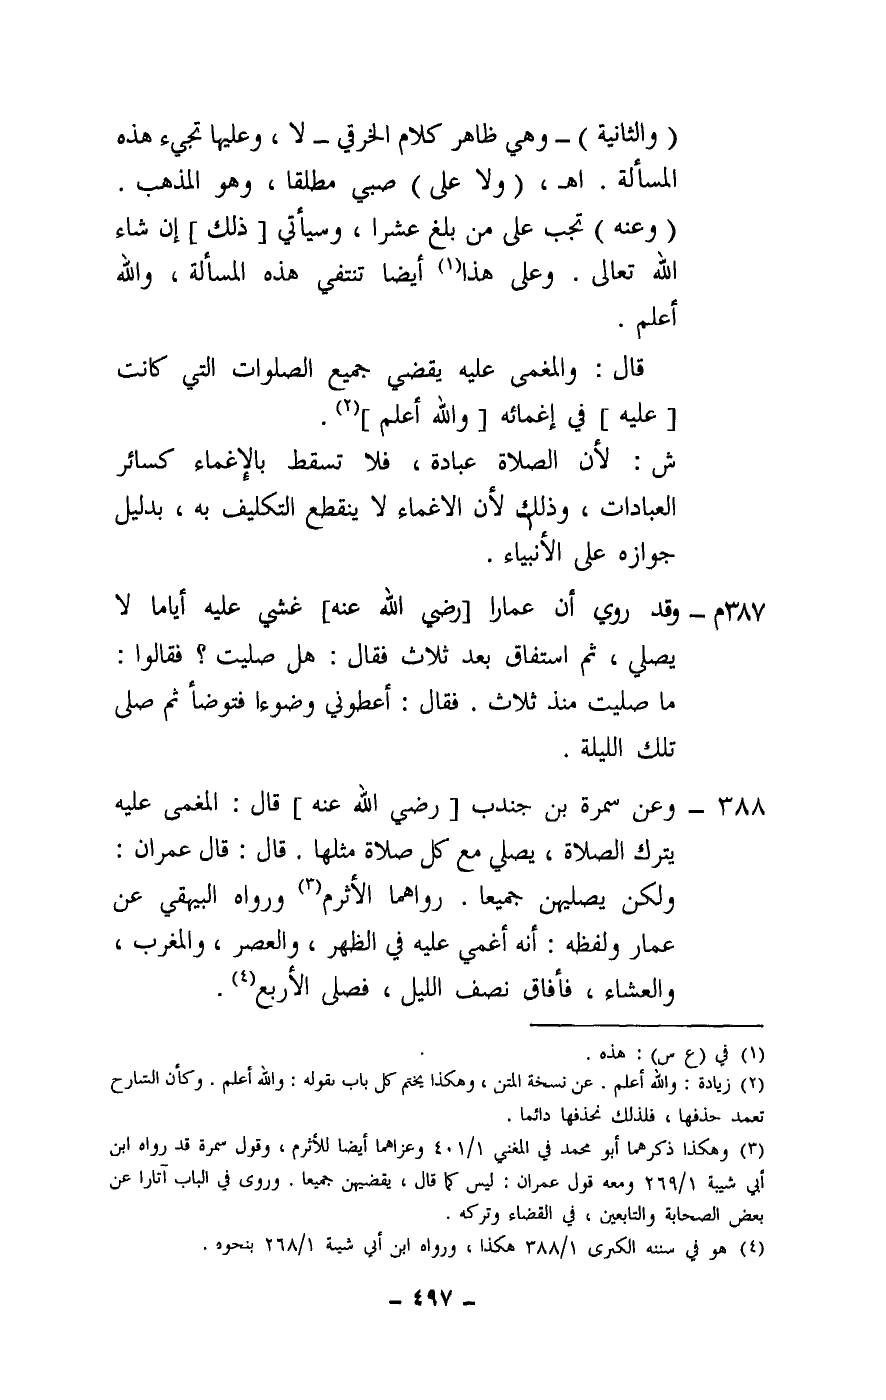 ( والثانية ) ــ وهي ظاهر كلام الخرقي ــ لا ، وعليها تجيء هذه
المسألة . اهـ ، ( ولا على ) صبي مطلقا ، وهو المذهب .
( وعنه ) تجب على من بلغ عشرا ، وسيأتي [ ذلك ] إن شاء
الله تعالى . وعلى هذا(١) أيضا تنتفي هذه المسألة ، والله
أعلم .
قال : والمغمى عليه يقضي جميع الصلوات التي كانت
[ عليه ] في إغمائه [ والله أعلم ](٢) .
ش : لأن الصلاة عبادة ، فلا تسقط بالإغماء كسائر
العبادات ، وذلك لأن الاغماء لا ينقطع التكليف به ، بدليل
جوازه على الأنبياء .
٣٨٧م ــ وقد روي أن عمارا [رضي الله عنه] غشي عليه أياما لا
يصلي ، ثم استفاق بعد ثلاث فقال : هل صليت ؟ فقالوا :
ما صليت منذ ثلاث . فقال : أعطوني وضوءا فتوضأ ثم صلى
تلك الليلة .
٣٨٨ ــ وعن سمرة بن جندب [ رضي الله عنه ] قال : المغمى عليه
يترك الصلاة ، يصلي مع كل صلاة مثلها . قال : قال عمران :
ولكن يصليهن جميعا . رواهما الأثرم(٣) ورواه البيهقي عن
عمار ولفظه : أنه أغمي عليه في الظهر ، والعصر ، والمغرب ،
والعشاء ، فأفاق نصف الليل ، فصلى الأربع(٤) .
(١) في (ع س) : هذه .
(٢) زيادة : والله أعلم . عن نسخة المتن ، وهكذا يختم كل باب بقوله : والله أعلم . وكأن الشارح
تعمد حذفها ، فلذلك نحذفها دائما .
(٣) وهكذا ذكرهما أبو محمد في المغني ٤٠١/١ وعزاهما أيضا للأثرم ، وقول سمرة قد رواه ابن
أبي شيبة ٢٦٩/١ ومعه قول عمران : ليس كما قال ، يقضيهن جميعا . وروى في الباب آثارا عن
بعض الصحابة والتابعين ، في القضاء وتركه .
(٤) هو في سننه الكبرى ٣٨٨/١ هكذا ، ورواه ابن أبي شيبة ٢٦٨/١ بنحوه .
ــ ٤٩٧ ــ